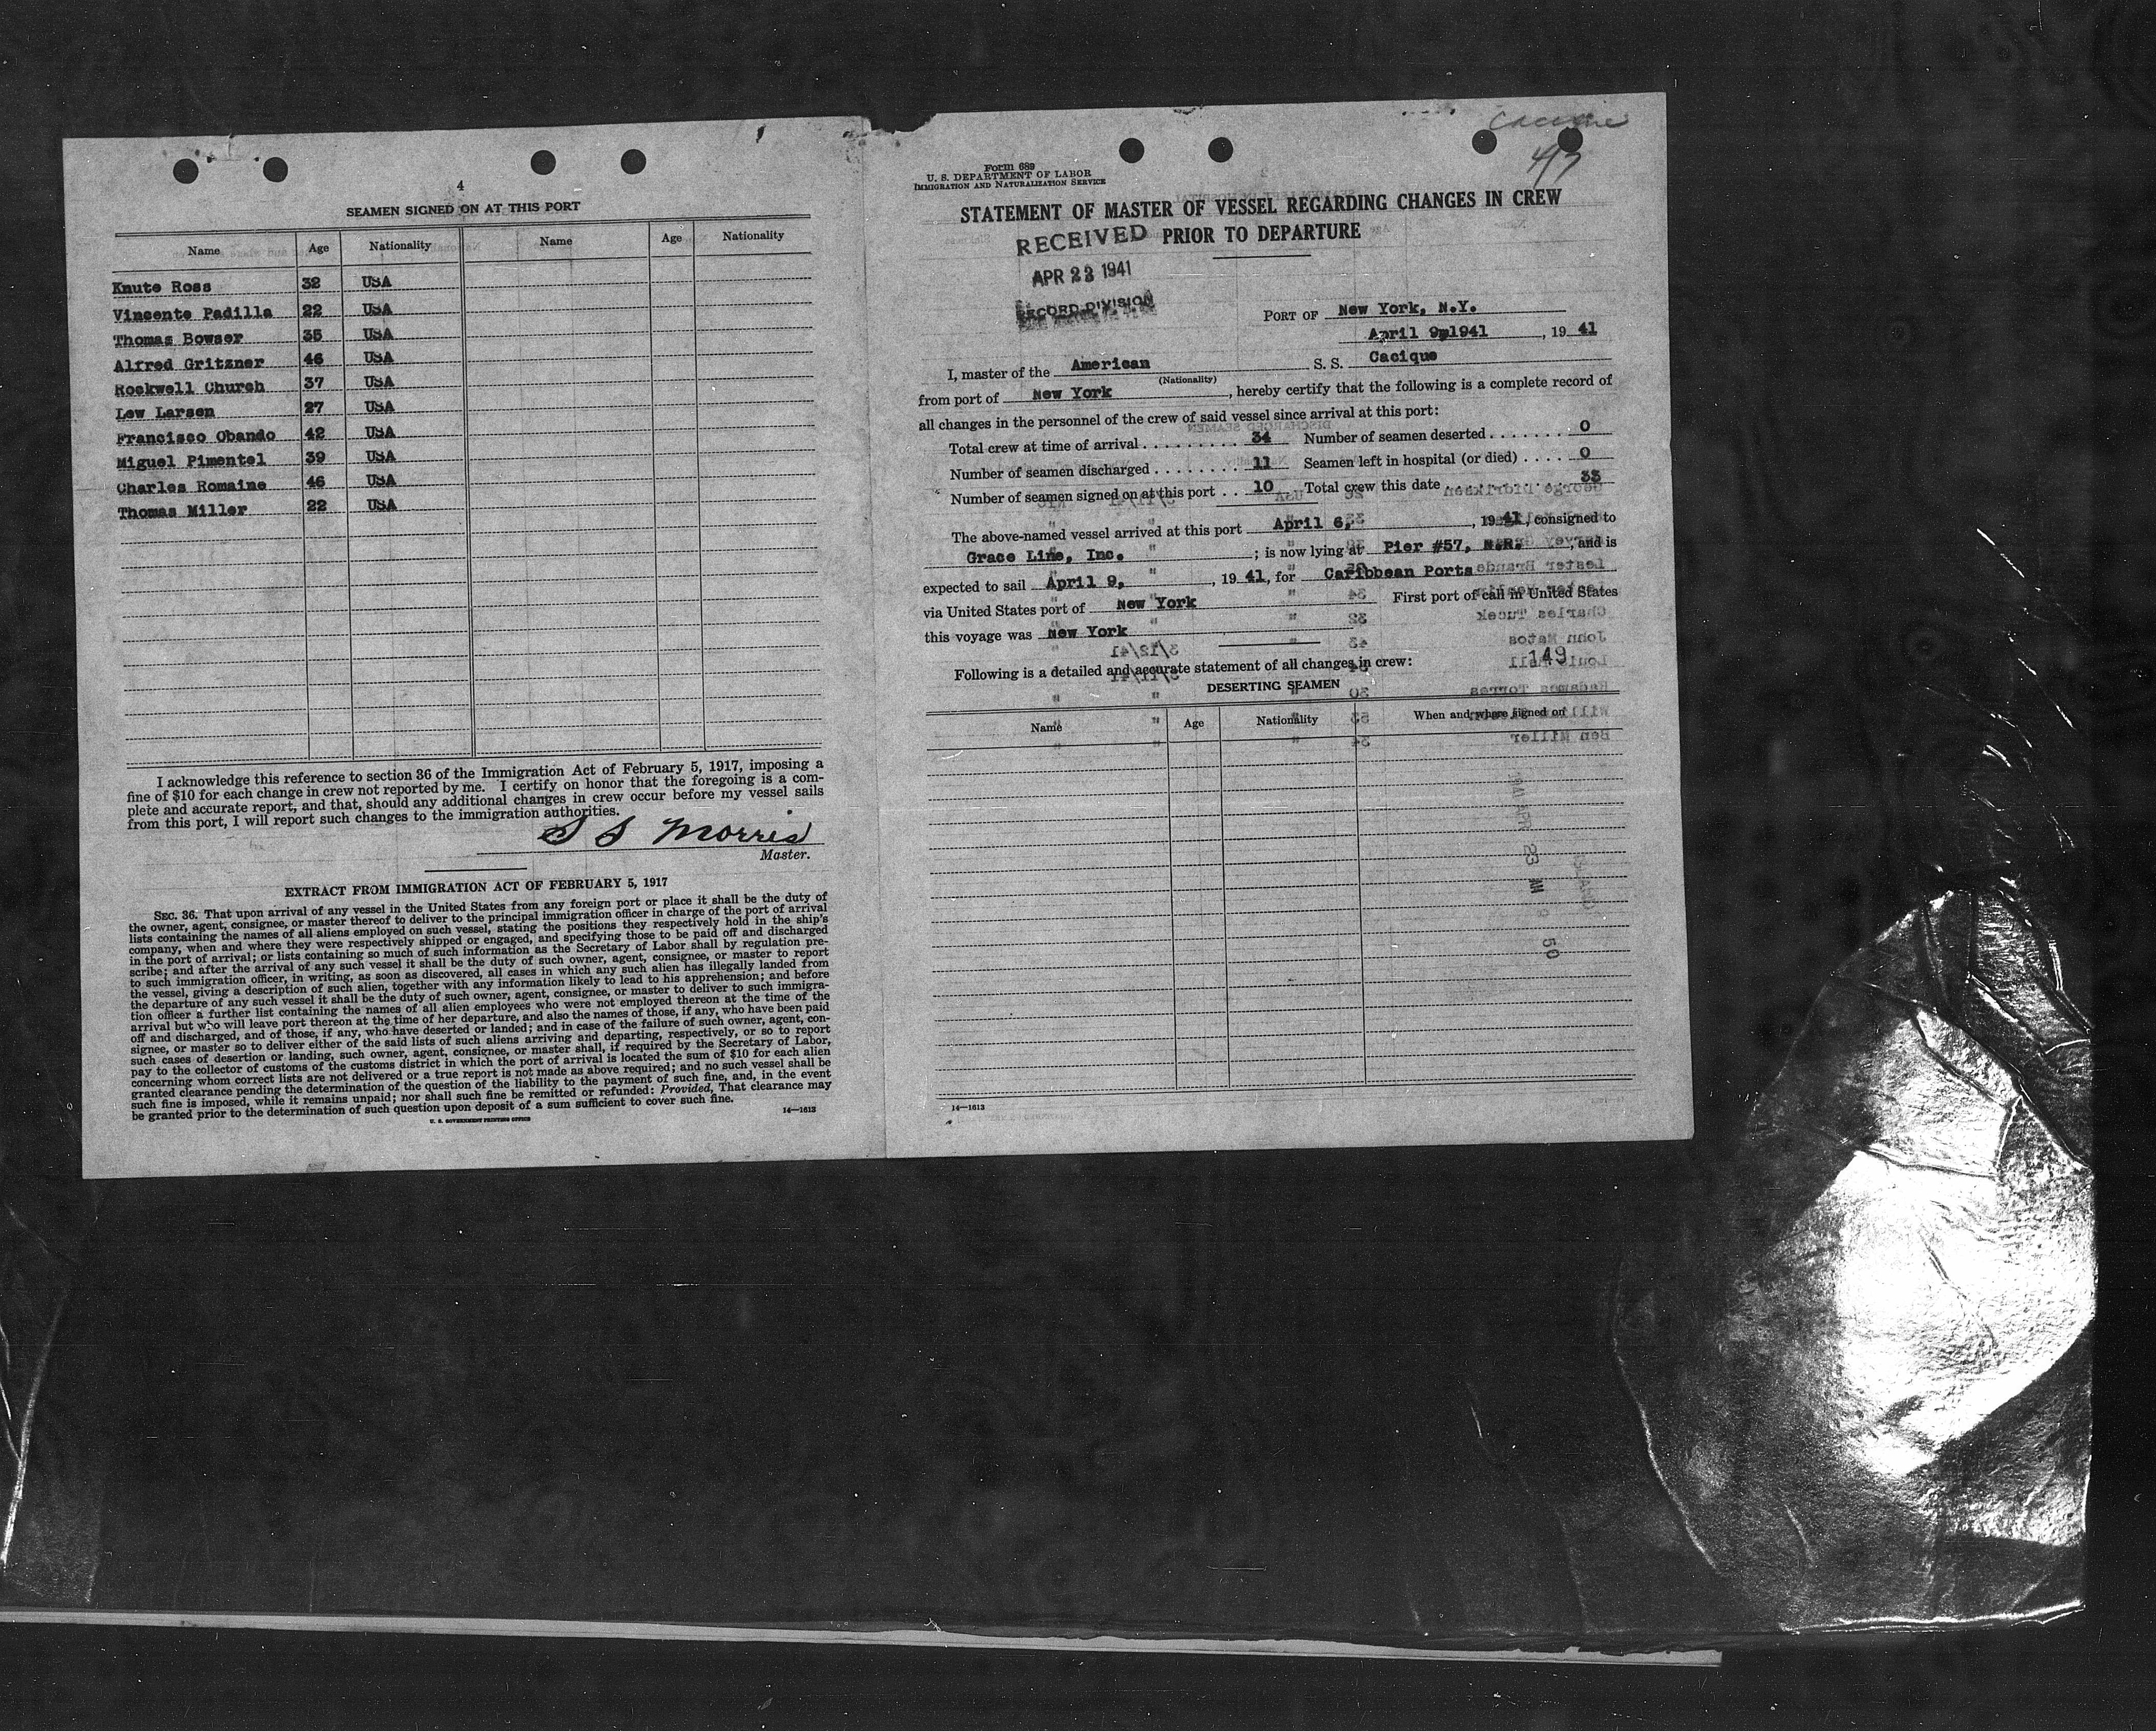 4
SEAMEN SIGNED ON AT THIS PORT
Name Age Nationality Name Age Nationality
Knute Ross 32 USA
Vincente Padilla 22 USA
Thomas Bowser 35 USA
Alfred Gritzner 46 USA
Rockwell Church 37 USA
Lew Larsen 27 USA
Francisco Obando 42 USA
Miguel Pimentel 39 USA
Charles Romaine 46 USA
Thomas Miller 22 USA
I acknowledge this reference to section 36 of the Immigration Act of February 5, 1917, imposing a
fine of $10 for each change in crew not reported by me. I certify on honor that the foregoing is a com-
plete and accurate report, and that, should any additional changes in crew occur before my vessel sails
from this port, I will report such changes to the immigration authorities.
S S Morris
Master.
EXTRACT FROM IMMIGRATION ACT OF FEBRUARY 5, 1917
SEC. 36. That upon arrival of any vessel in the United States from any foreign port or place it shall be the duty of
the owner, agent, consignee, or master thereof to deliver to the principal immigration officer in charge of the port of arrival
lists containing the names of all aliens employed on such vessel, stating the positions they respectively hold in the ship's
company, when and where they were respectively shipped or engaged, and specifying those to be paid off and discharged
in the port of arrival; or lists containing so much of such information as the Secretary of Labor shall by regulation pre-
scribe; and after the arrival of any such vessel it shall be the duty of such owner, agent, consignee, or master to report
to such immigration officer, in writing, as soon as discovered, all cases in which any such alien has illegally landed from
the vessel, giving a description of such alien, together with any information likely to lead to his apprehension; and before
the departure of any such vessel it shall be the duty of such owner, agent, consignee, or master to deliver to such immigra-
tion officer a further list containing the names of all alien employees who were not employed thereon at the time of the
arrival but who will leave port thereon at the time of her departure, and also the names of those, if any, who have been paid
off and discharged, and of those, if any, who have deserted or landed; and in case of the failure of such owner, agent, con-
signee, or master so to deliver either of the said lists of such aliens arriving and departing, respectively, or so to report
such cases of desertion or landing, such owner, agent, consignee, or master shall, if required by the Secretary of Labor,
pay to the collector of customs of the customs district in which the port of arrival is located the sum of $10 for each alien
concerning whom correct lists are not delivered or a true report is not made as above required; and no such vessel shall be
granted clearance pending the determination of the question of the liability to the payment of such fine, and, in the event
such fine is imposed, while it remains unpaid; nor shall such fine be remitted or refunded: Provided, That clearance may
be granted prior to the determination of such question upon deposit of a sum sufficient to cover such fine.
14—1613
U. S. GOVERNMENT PRINTING OFFICE
Cacique
4/7
Form 689
U. S. DEPARTMENT OF LABOR
IMMIGRATION AND NATURALIZATION SERVICE
STATEMENT OF MASTER OF VESSEL REGARDING CHANGES IN CREW
PRIOR TO DEPARTURE
RECEIVED
APR 23 1941
RECORD DIVISION
PORT OF New York, N.Y.
April 9, 1941, 19 41
I, master of the American S. S. Cacique
(Nationality)
from port of New York, hereby certify that the following is a complete record of
all changes in the personnel of the crew of said vessel since arrival at this port:
Total crew at time of arrival . . . . . . . . . 34 Number of seamen deserted . . . . . . . 0
Number of seamen discharged . . . . . . . . 11 Seamen left in hospital (or died) . . . . 0
Number of seamen signed on at this port . . 10 Total crew this date . . . . . . . . . . . 33
The above-named vessel arrived at this port April 6, , 19 41, consigned to
Grace Line, Inc. ; is now lying at Pier #57, N.R. , and is
expected to sail April 9, , 19 41, for Caribbean Ports
via United States port of New York First port of call in United States
this voyage was New York
Following is a detailed and accurate statement of all changes in crew:
149
DESERTING SEAMEN
Name Age Nationality When and where signed on
1941 APR 23 AM 9 50
14—1613